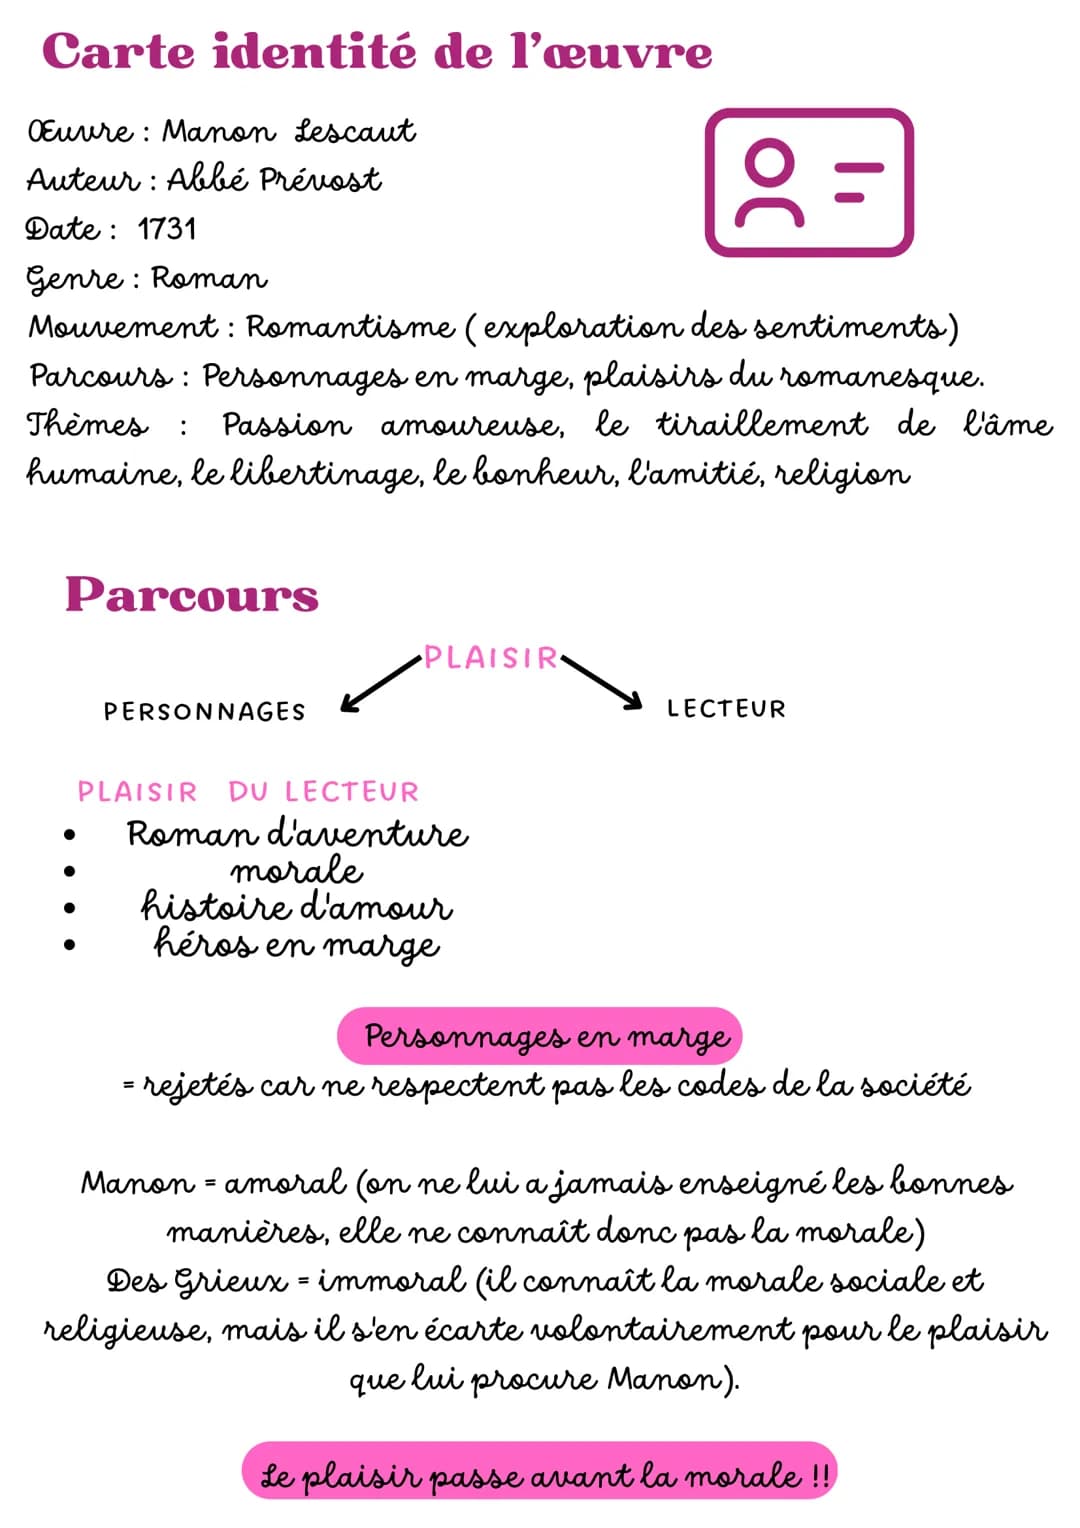 Carte identité de l'œuvre
Œuvre : Manon Lescaut
Auteur : Abbé Prévost
Date : 1731
Genre : Roman
Mouvement : Romantisme ( exploration des sentiments)
Parcours : Personnages en marge, plaisirs du romanesque.
Thèmes : Passion amoureuse, le tiraillement de l'âme
humaine, le libertinage, le bonheur, l'amitié, religion
Parcours
PLAISIR
PERSONNAGES
LECTEUR
PLAISIR DU LECTEUR
• Roman d'aventure
• morale
• histoire d'amour
• héros en marge
Personnages en marge
= rejetés car ne respectent pas les codes de la société
Manon = amoral (on ne lui a jamais enseigné les bonnes
manières, elle ne connaît donc pas la morale)
Des Grieux = immoral (il connaît la morale sociale et
religieuse, mais il s'en écarte volontairement pour le plaisir
que lui procure Manon).
Le plaisir passe avant la morale !!